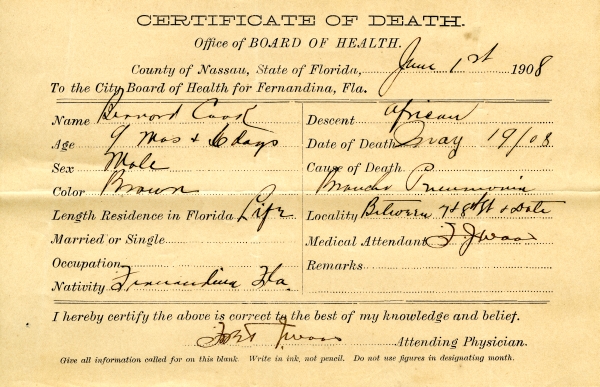 CERTIFICATE OF DEATH.
Office of BOARD OF HEALTH.
County of Nassau, State of Florida, June 1st 1908
To the City Board of Health for Fernandina, Fla.
Name Bernard Cook
Age 9 Mos + 6 days
Sex Male
Color Brown
Length Residence in Florida Life
Married or Single
Occupation
Nativity Fernandina Fla.
Descent African
Date of Death May 19/08
Cause of Death
Broncho Pneumonia
Locality Between 7 & 8th St & Date
Medical Attendant
Remarks
I hereby certify the above is correct to the best of my knowledge and belief.
Attending Physician.
Give all information called for on this blank. Write in ink, not pencil. Do not use figures in designating month.